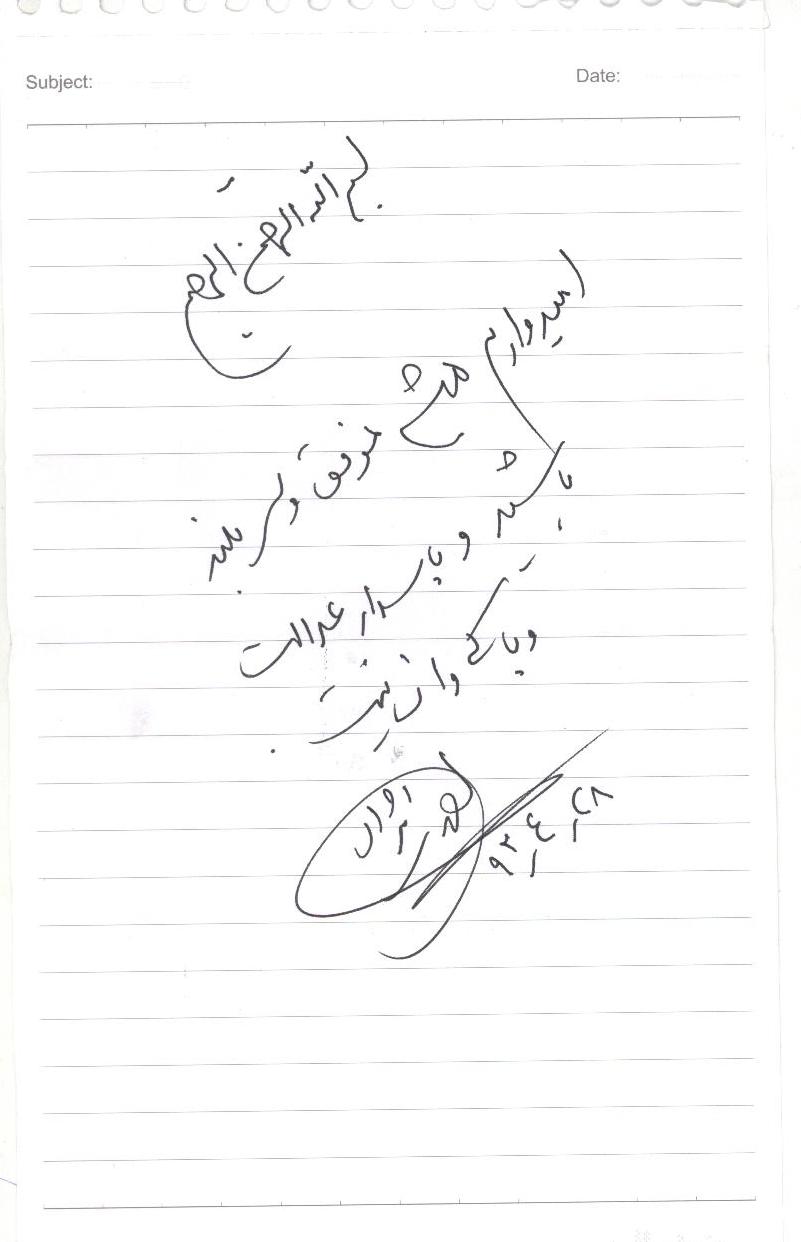 Subject: Date:
بسم الله الرحمن الرحیم
امیدوارم همه
موفق و سر بلند
باشند و پاسدار عدالت
و پاکی و
۹۳/۴/۲۸